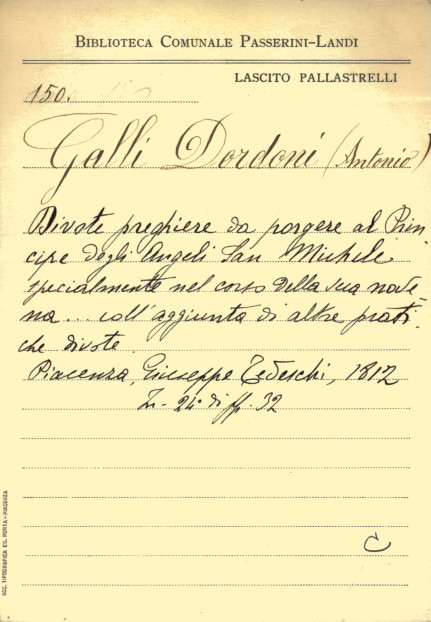 BIBLIOTECA COMUNALE PASSERINI-LANDI
LASCITO PALLASTRELLI
150.
Galli Dordoni (Antonio)
Divote preghiere da porgere al Prin
cipe degli Angeli San Michele
specialmente nel corso della sua nove
na... coll'aggiunta di altre prati
che divote.
Piacenza, Giuseppe Tedeschi, 1812
In-24° di ff. 32
C
SOC. TIPOGRAFICA ED. PORTA - PIACENZA